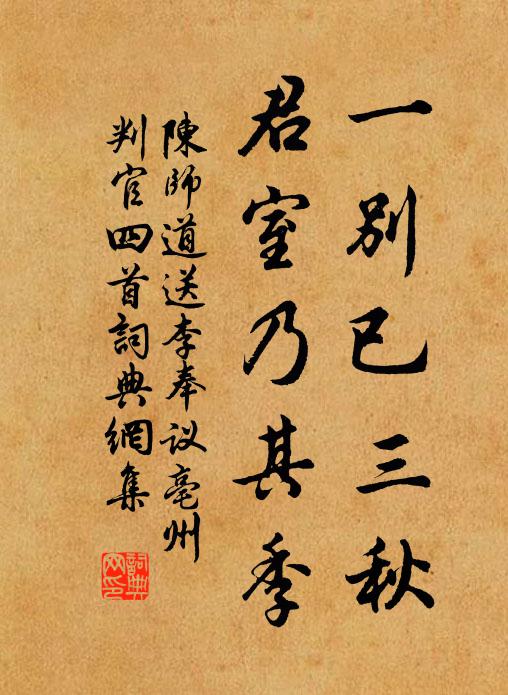 一别已三秋
君室乃其季
陳師道送李奉议亳州
判官四首詞典網集
詞典
网印